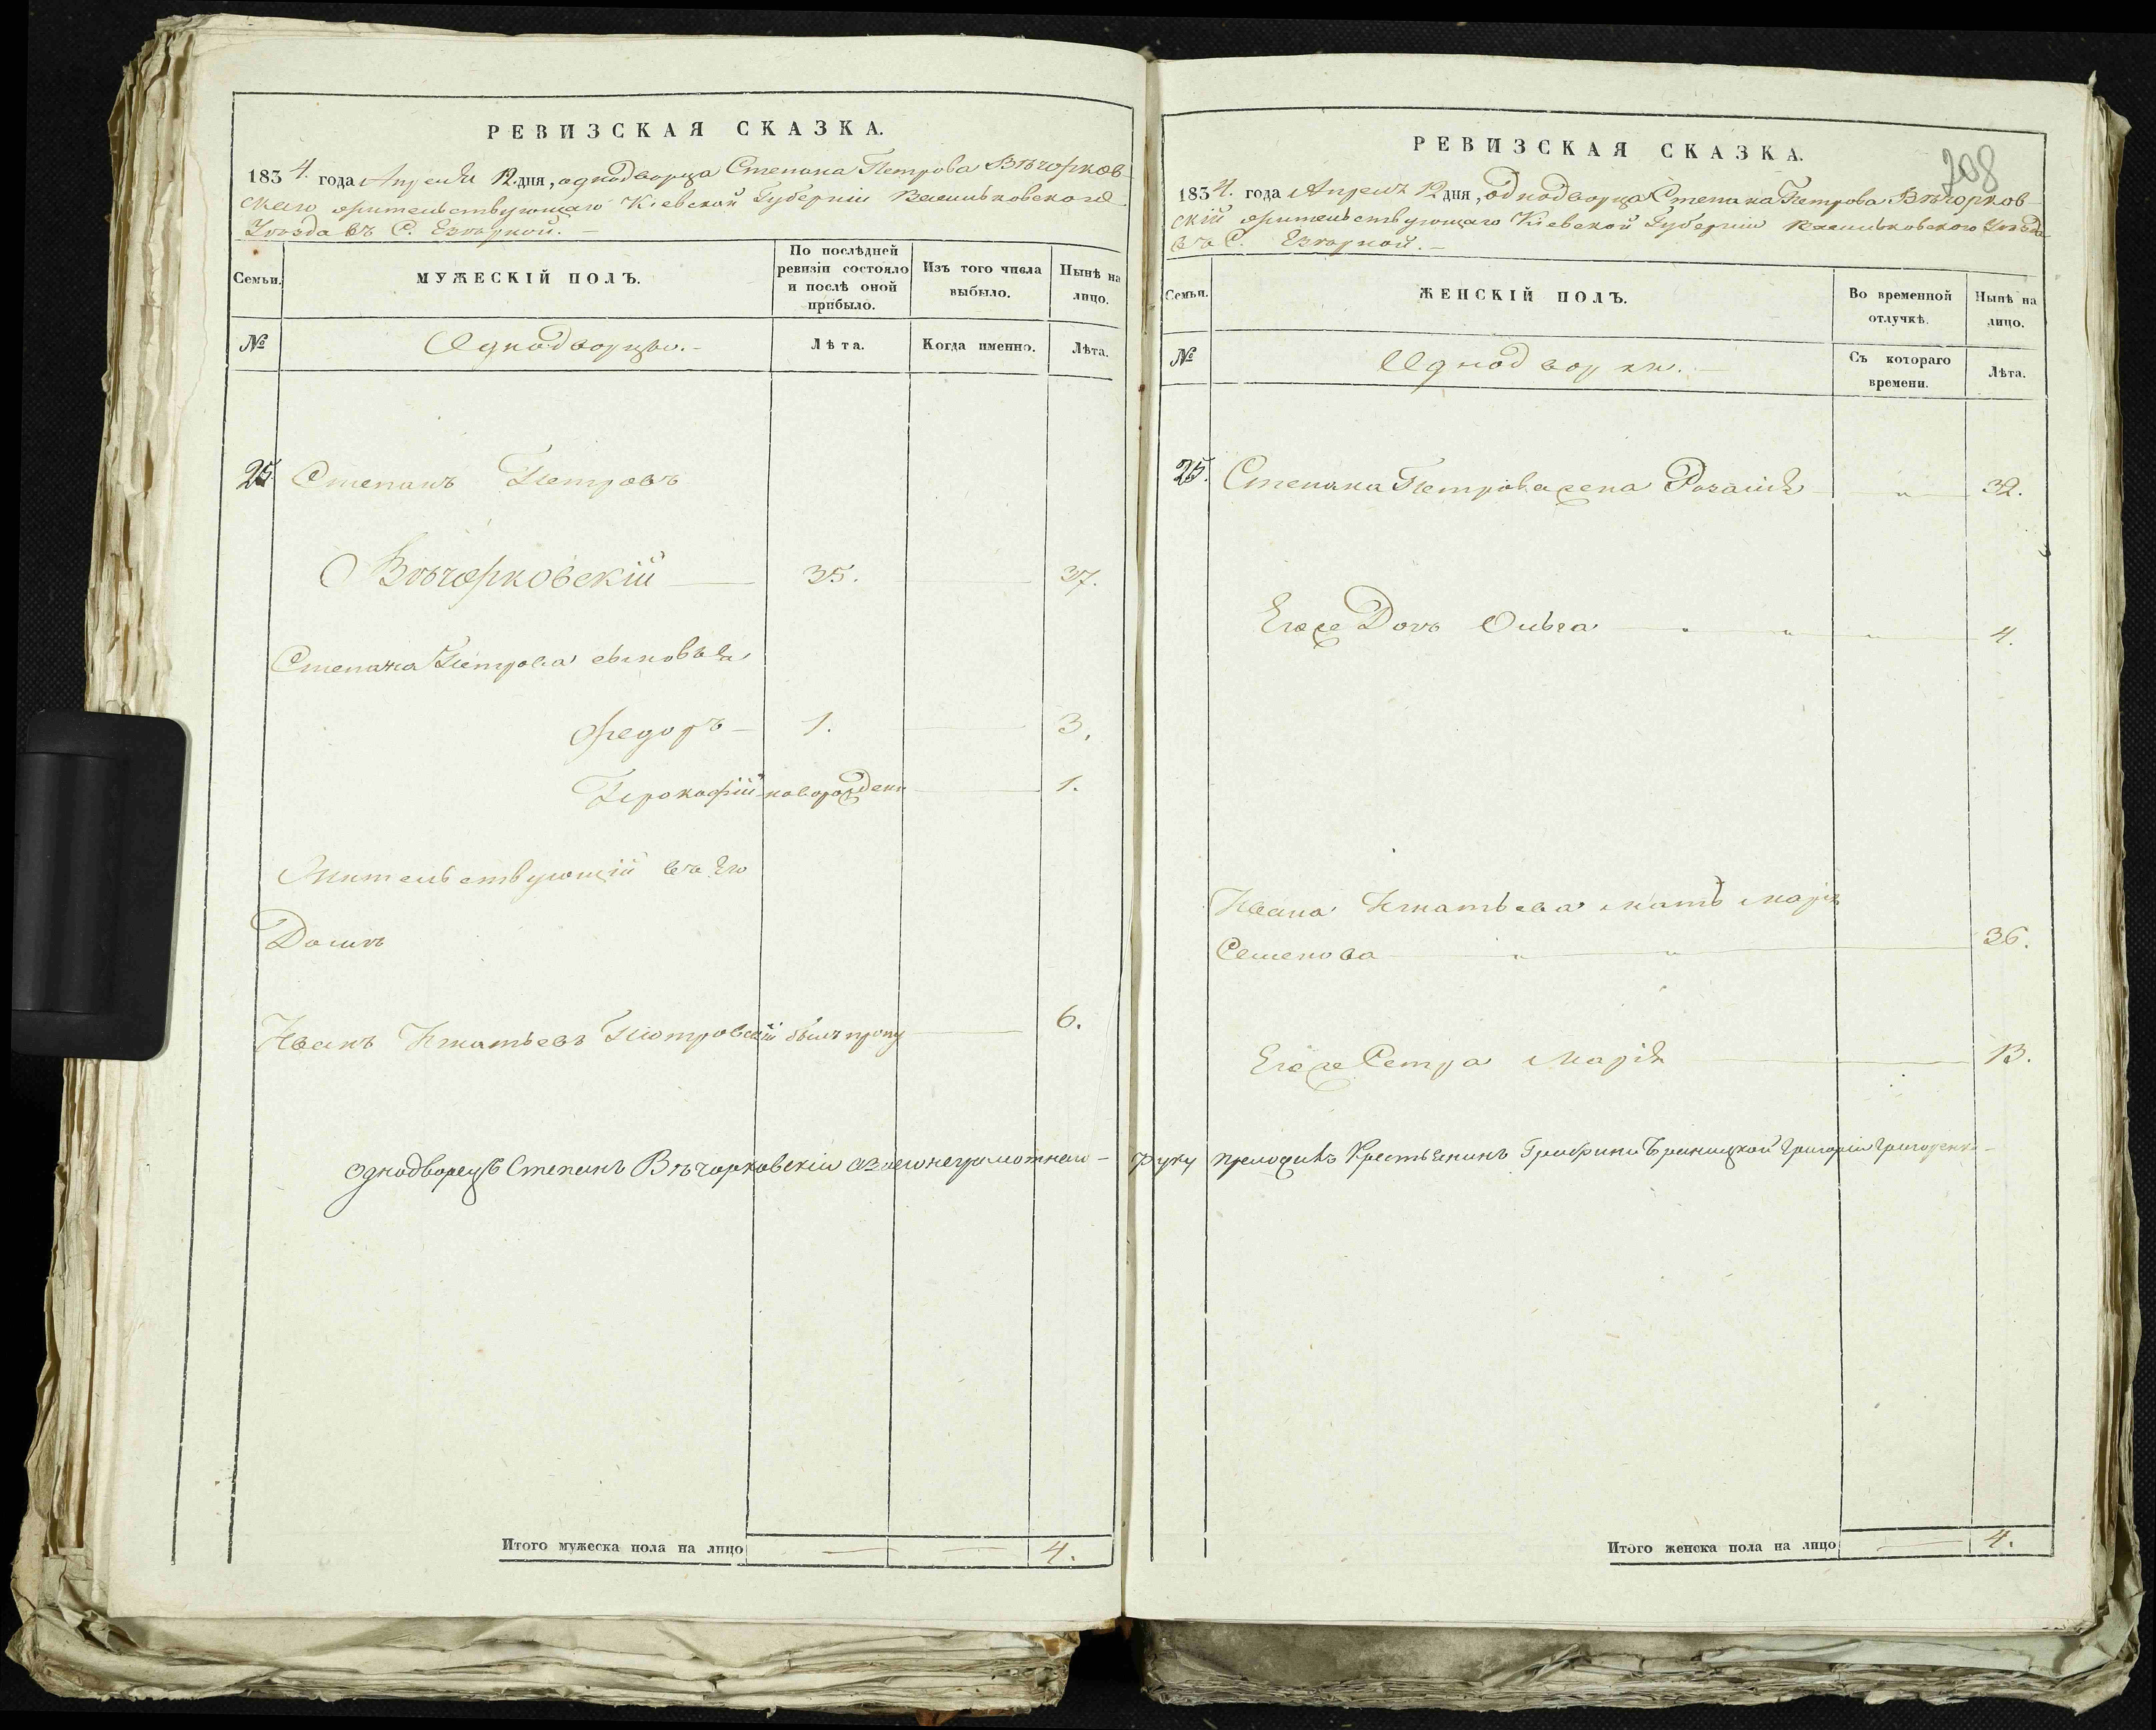 РЕВИЗСКАЯ СКАЗКА.
1834. года Апреля 12. дня, однодворца Степана Петрова Вѣчорков-
скаго жительствующаго Кіевской Губерніи Васильковского
Уѣзда въ С. Езѣрной.-
Семьи.
МУЖЕСКІЙ ПОЛЪ.
По послѣдней ревизіи состояло и послѣ оной прибыло.
Изъ того числа выбыло.
Нынѣ на лицо.
№
Однодворцы.-
Лѣта.
Когда именно.
Лѣта.
25. Степанъ Петровъ
Вѣчорковскій — 35. — 37.
Степана Петрова сыновья
Федоръ — 1. — 3.
Прокофій новорожден — 1.
Жительствующій въ Его
Домѣ
Иванъ Игнатьевъ Піотровскій былъ проп — 6.
однодворецъ Степанъ Вѣчорковскій а вмѣсто неграмотнаго-
Итого мужеска пола на лицо — — 4.
208
РЕВИЗСКАЯ СКАЗКА.
1834. года Апрель 12 дня, однодворца Степана Петрова Вѣчорков-
скій жительствующаго Кіевской Губерніи Васильковского Уѣзда
въ С. Езѣрной.-
Семьи.
ЖЕНСКІЙ ПОЛЪ.
Во временной отлучкѣ.
Нынѣ на лицо.
№
Однодворки.-
Съ котораго времени.
Лѣта.
25. Степана Петрова жена Розалія — " — 32.
Его же Дочь Ольга — " " " — 4.
Ивана Игнатьева мать Марія
Семенова — " " — 36.
Его же Сестра Марія — 13.
руку приложилъ Крестьянинъ Графини Браницкой Григорій
Итого женска пола на лицо — 4.